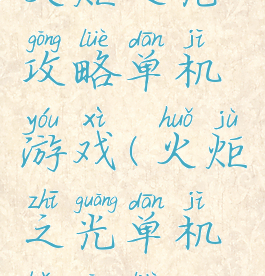 gōng lüè dān jī
攻略单机
yóu xì huǒ jù
游戏(火炬
zhī guāng dān jī
之光单机